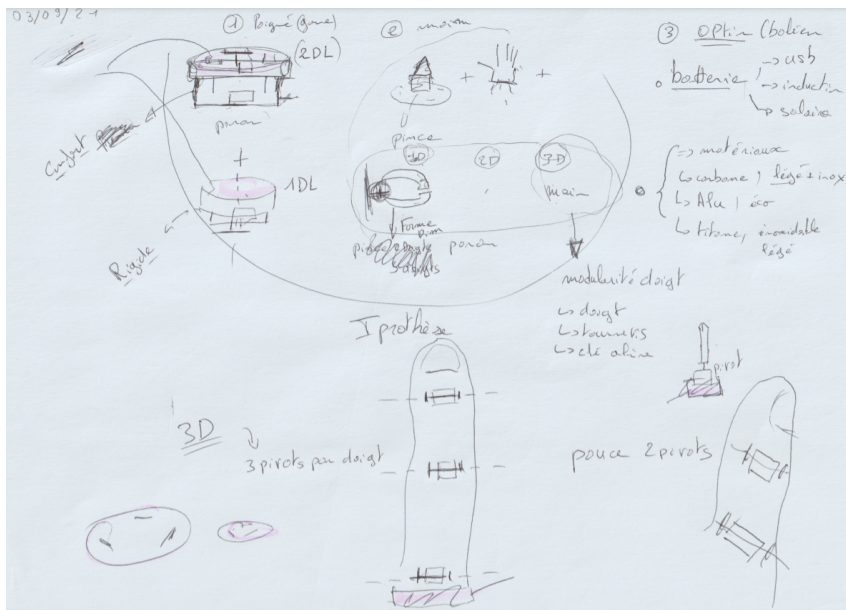 03/09/21
① Poigné (gauche)
(2DL)
pivot
Confort
+
1DL
Rigide
② maison
+ +
pince
1D 2D 3D
main
Forme
pince
modularité doigt
↳ doigt
↳ tournevis
↳ clé aline
③ Option (booléen
• batterie → usb
→ induction
↳ solaire
⇒ matériaux
↳ carbone, légé & inox
↳ Alu, éco
↳ titane, inoxidable
légé
I prothèse
pivot
3D
↳ 3 pivots par doigt
pouce 2 pivots